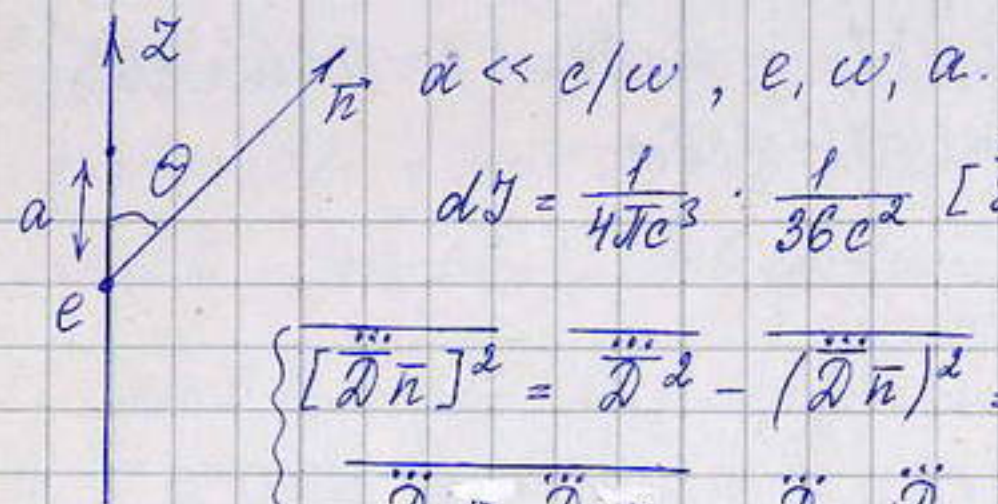 Z
n̄
a << c/ω , e, ω, a.
a
θ
e
dJ = 1/(4πc³) · 1/(36c²) [
[D̄⃛ n̄]² = D̄⃛² − (D̄⃛ n̄)² =